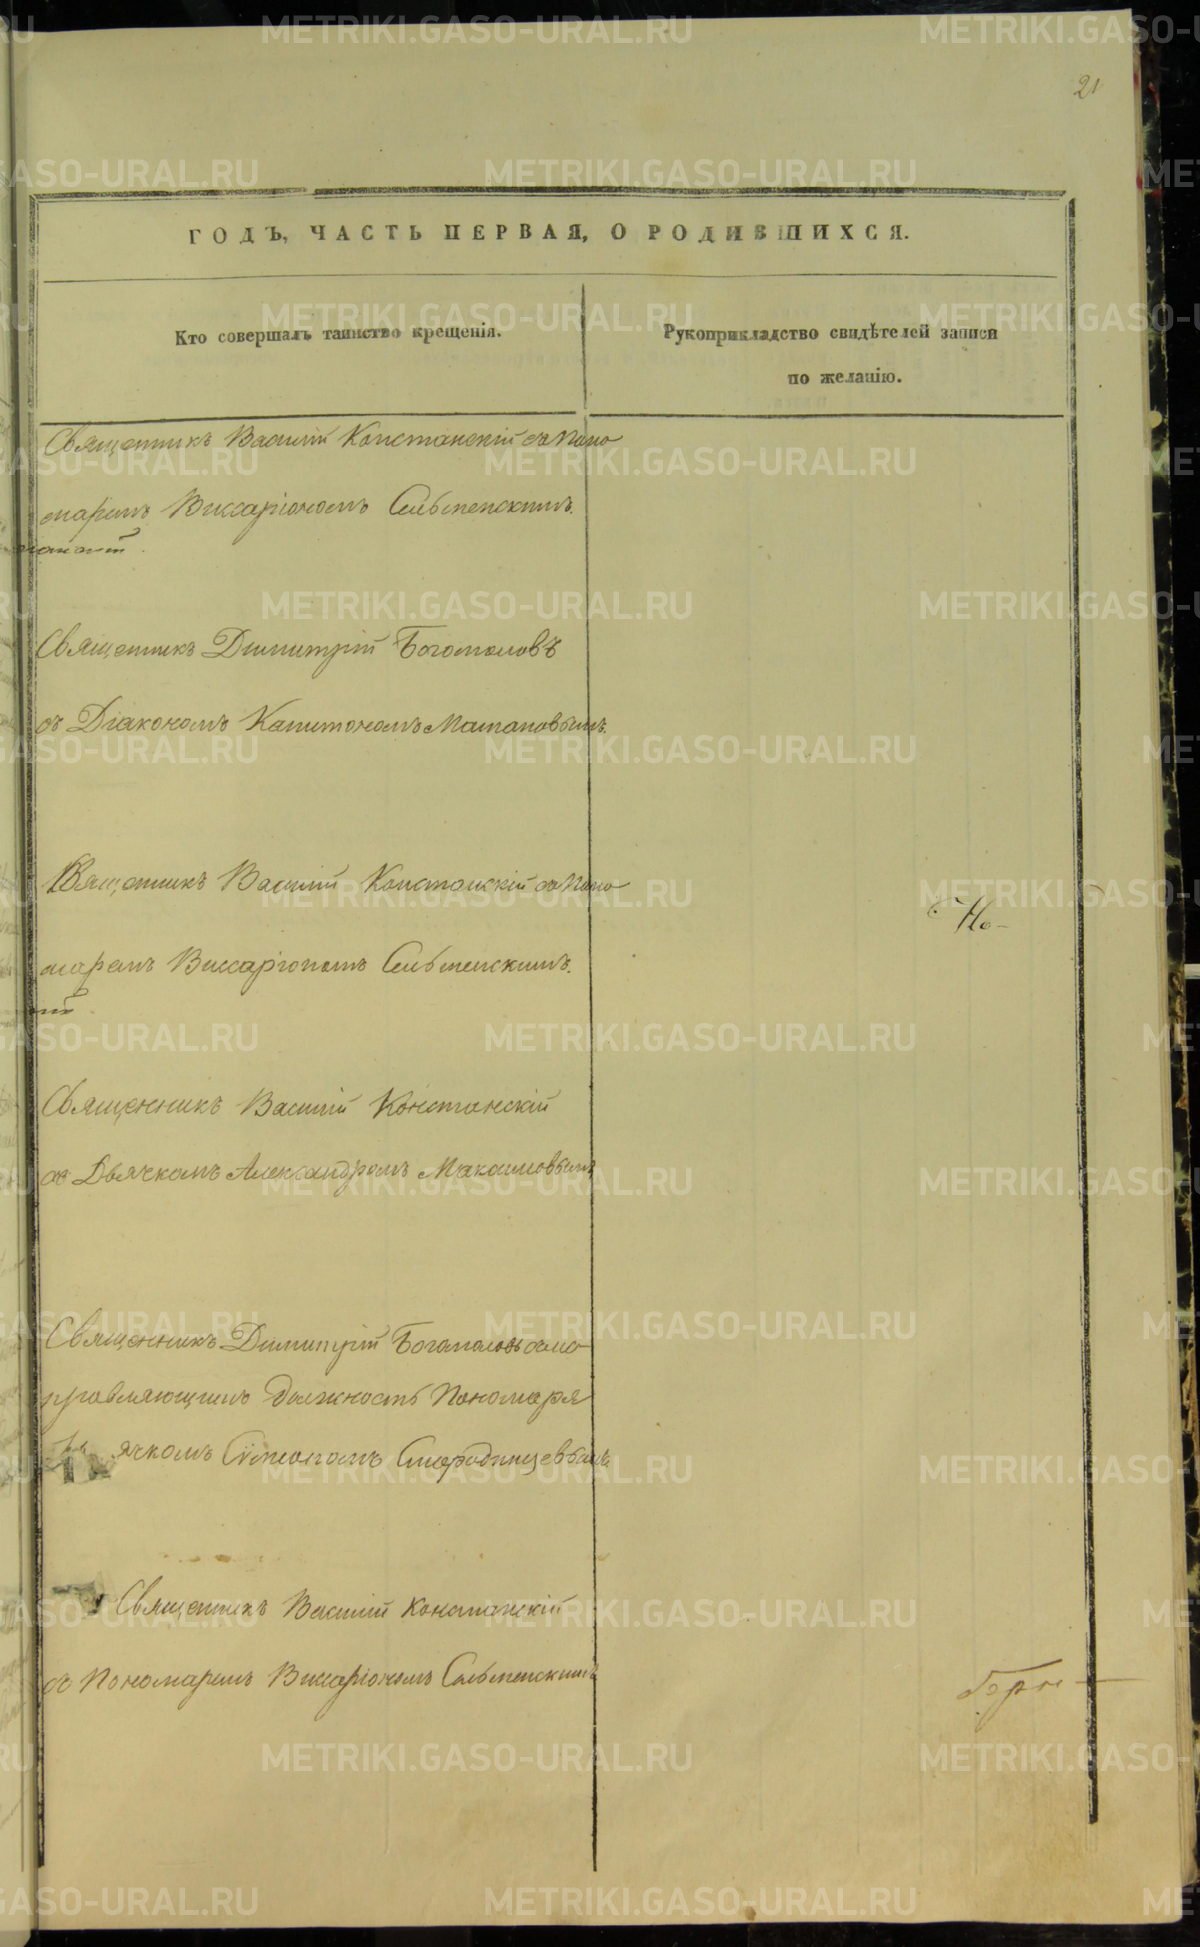 21
ГОДЪ, ЧАСТЬ ПЕРВАЯ, О РОДИВШИХСЯ.
Кто совершалъ таинство крещенія.
Рукоприкладство свидѣтелей записи
по желанію.
Священникъ Василій Констанскій съ Поно
маремъ Виссаріономъ Сельменскимъ.
Священникъ Димитрій Богомоловъ
съ Діакономъ Капитономъ
Священникъ Василій Констанскій съ Поно
маремъ Виссаріономъ Сельменскимъ.
Но-
Священникъ Василій Констанскій
съ Дьячкомъ Александромъ Максимовымъ
Священникъ Димитрій Богомоловъ съ
правляющимъ должность Пономаря
ячкомъ Сѵмеономъ Смородинцевымъ
Священникъ Василій Констанскій
съ Пономаремъ Виссаріономъ Сельменскимъ
METRIKI.GASO-URAL.RU